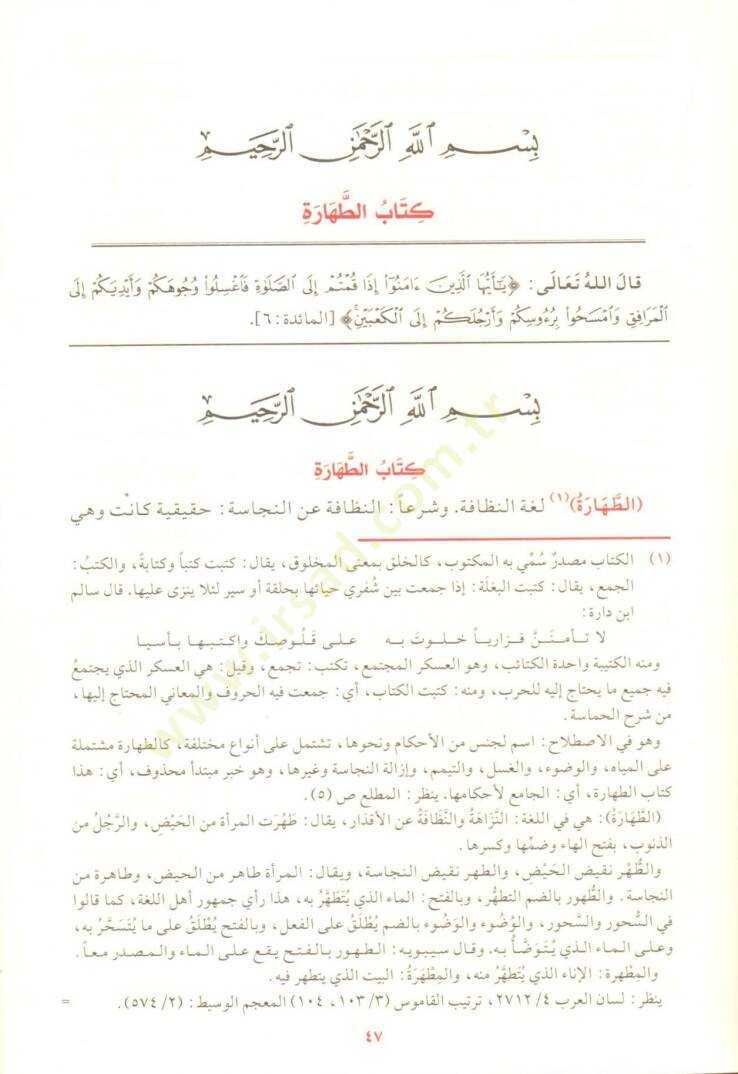 بِسْمِ اللَّهِ الرَّحْمَٰنِ الرَّحِيمِ
كِتَابُ الطَّهَارَةِ
قالَ اللهُ تَعَالَى: ﴿يَٰٓأَيُّهَا ٱلَّذِينَ ءَامَنُوٓا۟ إِذَا قُمْتُمْ إِلَى ٱلصَّلَوٰةِ فَٱغْسِلُوا۟ وُجُوهَكُمْ وَأَيْدِيَكُمْ إِلَى
ٱلْمَرَافِقِ وَٱمْسَحُوا۟ بِرُءُوسِكُمْ وَأَرْجُلَكُمْ إِلَى ٱلْكَعْبَيْنِ﴾ [المائدة: ٦].
بِسْمِ اللَّهِ الرَّحْمَٰنِ الرَّحِيمِ
كِتَابُ الطَّهَارَةِ
(الطَّهَارَةُ)(١) لغة النظافة. وشرعاً: النظافة عن النجاسة: حقيقية كانت وهي
(١) الكتاب مصدرٌ سُمِّي به المكتوب، كالخلق بمعنى المخلوق، يقال: كتبت كتباً وكتابةً، والكتبُ:
الجمع، يقال: كتبت البغلَة: إذا جمعت بين شُفري حيائها بحلقة أو سير لئلا ينزى عليها. قال سالم
ابن دارة:
لا تأمننَّ فزارياً خلوتَ به على قَلُوصِكَ واكتبها بأسيا
ومنه الكتيبة واحدة الكتائب، وهو العسكر المجتمع، تكتب: تجمع، وقيل: هي العسكر الذي يجتمعُ
فيه جميع ما يحتاج إليه للحرب، ومنه: كتبت الكتاب، أي: جمعت فيه الحروف والمعاني المحتاج إليها،
من شرح الحماسة.
وهو في الاصطلاح: اسم لجنس من الأحكام ونحوها، تشتمل على أنواع مختلفة، كالطهارة مشتملة
على المياه، والوضوء، والغسل، والتيمم، وإزالة النجاسة وغيرها، وهو خبر مبتدأ محذوف، أي: هذا
كتاب الطهارة، أي: الجامع لأحكامها. ينظر: المطلع ص (٥).
(الطَّهَارَةُ): هي في اللغة: النَّزَاهَةُ والنَّظَافَةُ عن الأقذار، يقال: طَهُرَت المرأة من الحَيْضِ، والرَّجُلُ من
الذنوب، بفتح الهاء وضمِّها وكسرها.
والطُّهْر نقيض الحَيْضِ، والطهر نقيض النجاسة، ويقال: المرأة طاهر من الحيض، وطاهرة من
النجاسة. والطُّهور بالضم التطهُّر، وبالفتح: الماء الذي يُتَطَهَّرُ به، هذا رأي جمهور أهل اللغة، كما قالوا
في السُّحور والسَّحور، والوُضُوء والوَضُوء بالضم يُطْلَقُ على الفعل، وبالفتح يُطْلَقُ على ما يُتَسَحَّرُ به،
وعلى الماء الذي يُتَوَضَّأُ به. وقال سيبويه: الطهور بالفتح يقع على الماء والمصدر معاً.
والمِطْهرة: الإناء الذي يُتَطهَّرُ منه، والمِطْهَرَةُ: البيت الذي يتطهر فيه.
ينظر: لسان العرب ٤/ ٢٧١٢، ترتيب القاموس (٣/ ١٠٣، ١٠٤) المعجم الوسيط: (٢/ ٥٧٤). =
٤٧
www.irsad.com.tr